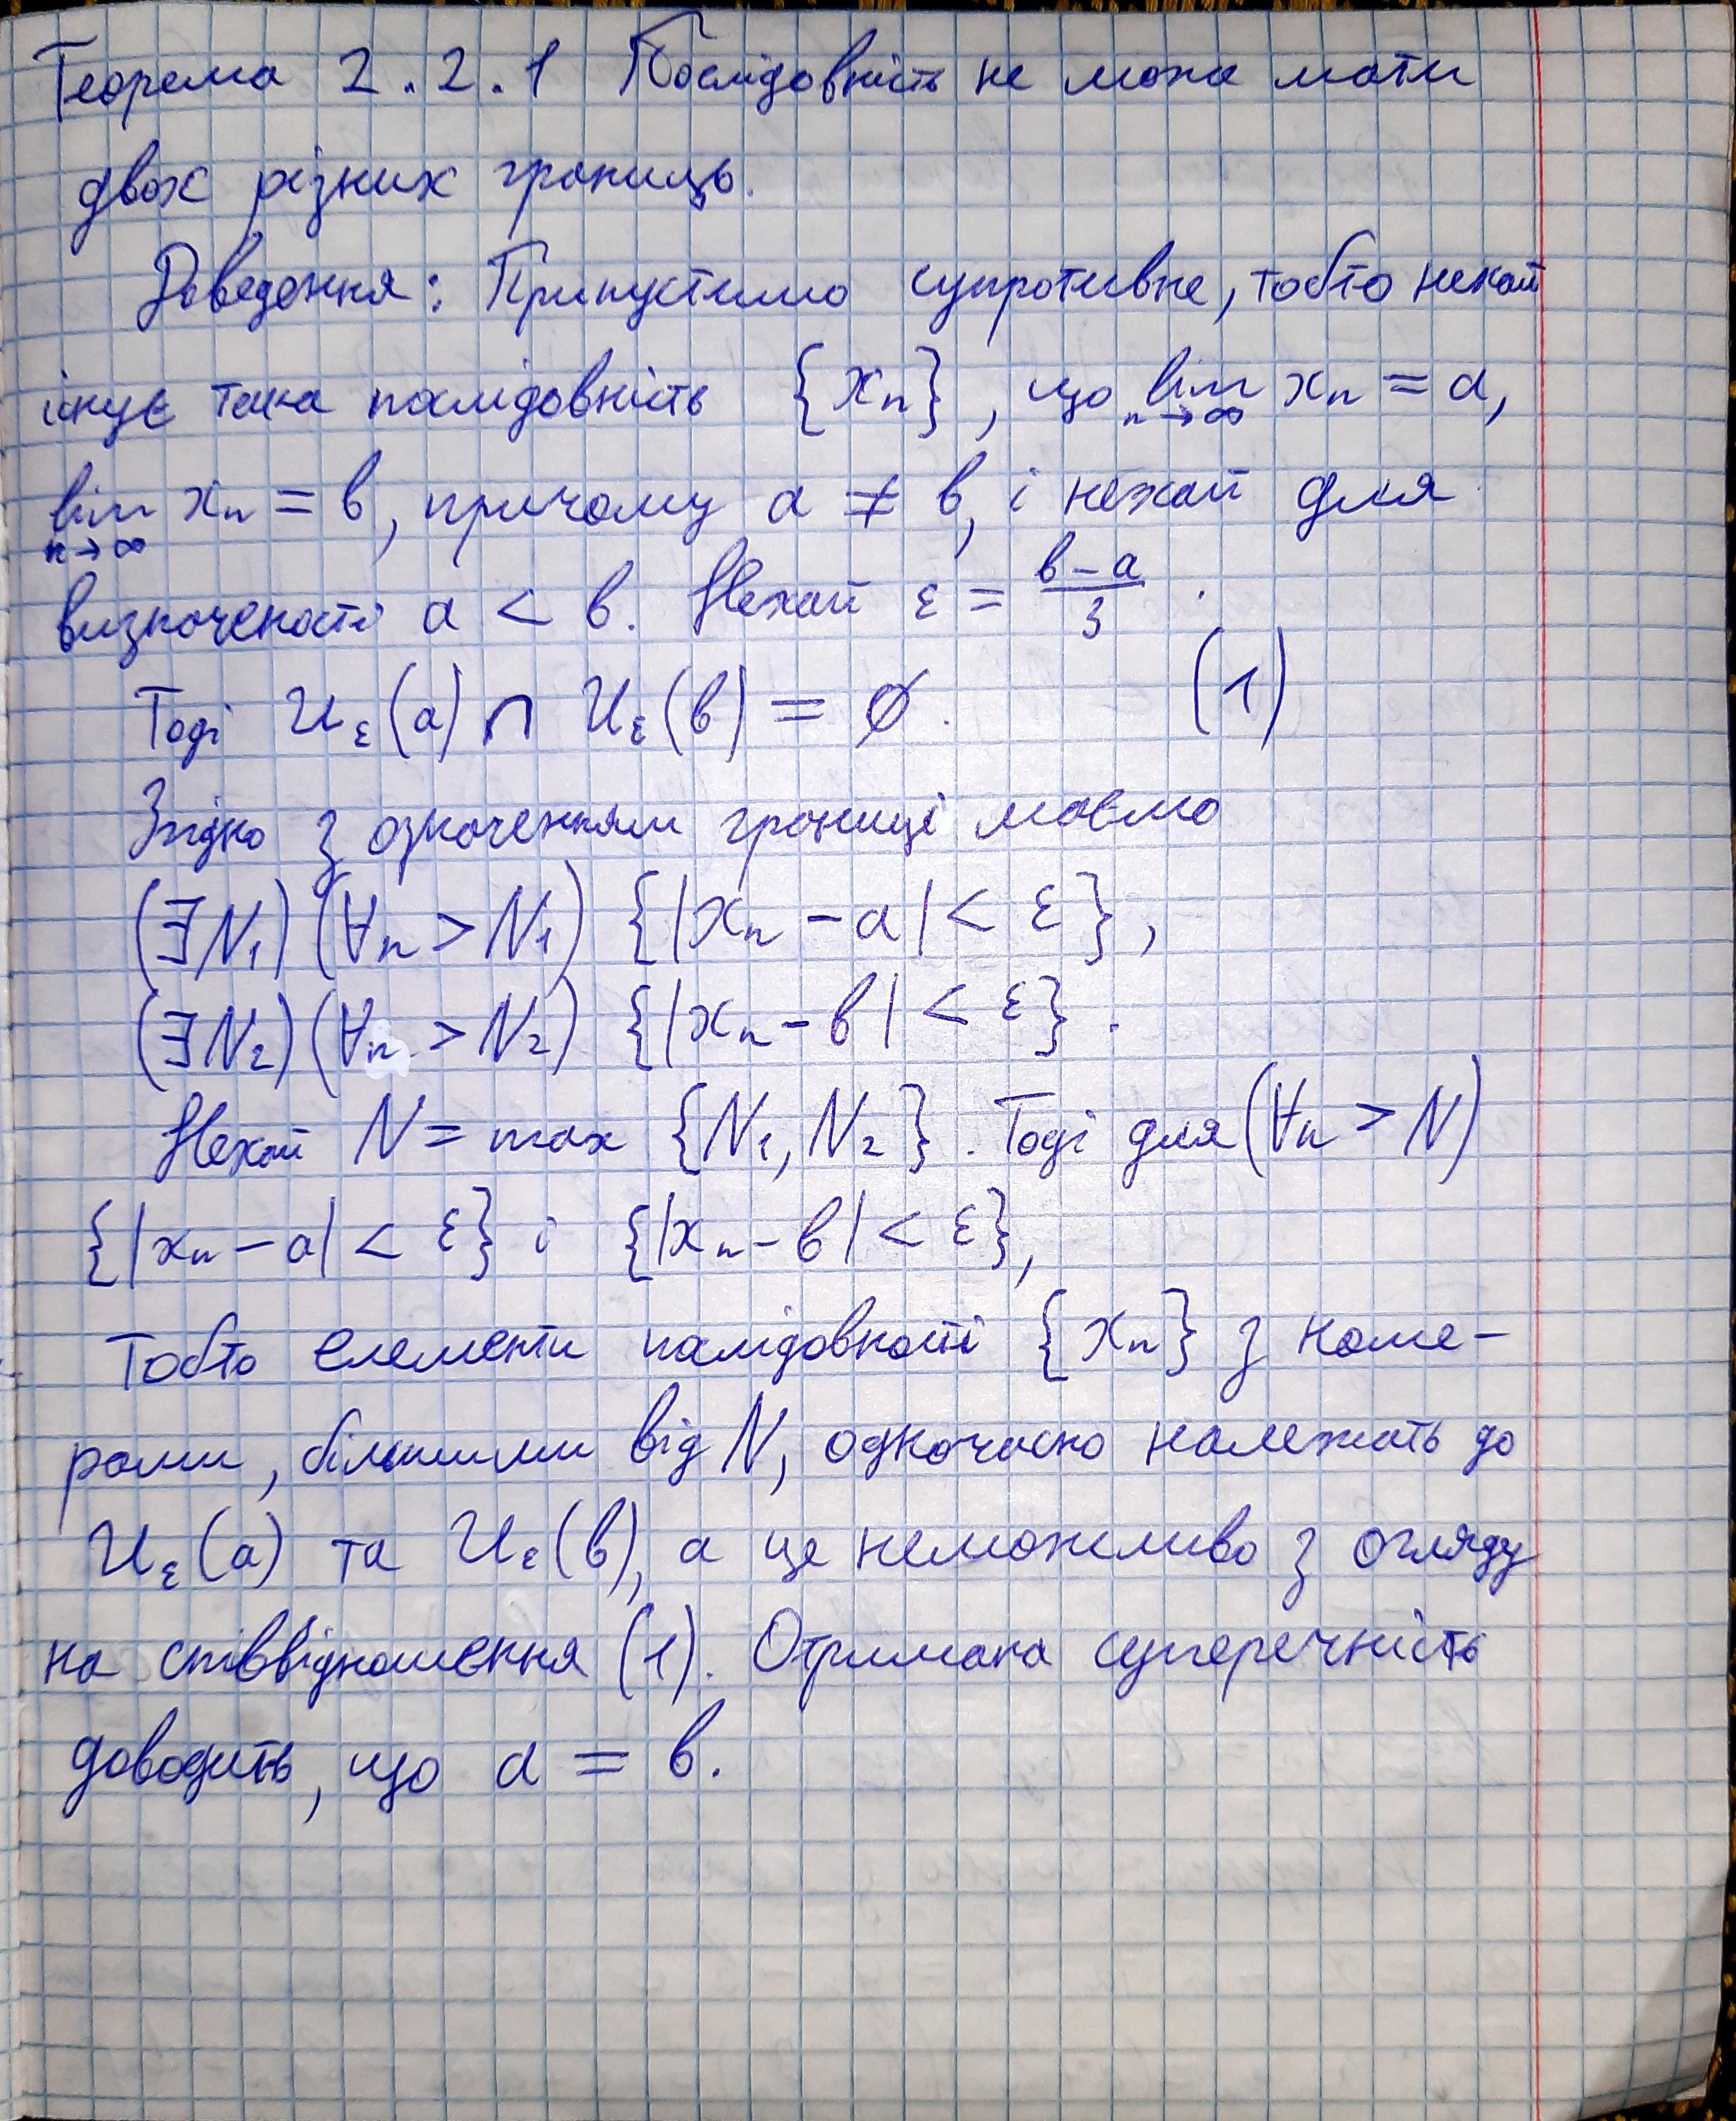 Теорема 2.2.1 Послідовність не може мати
двох різних границь.
Доведення: Припустимо супротивне, тобто нехай
існує така послідовність {xₙ}, що lim xₙ = a,
n→∞
lim xₙ = b, причому a ≠ b, і нехай для
n→∞
визначеності a < b. Нехай ε = (b-a)/3.
Тоді U_ε(a) ∩ U_ε(b) = ∅. (1)
Згідно з означенням границі маємо
(∃N₁)(∀n > N₁) {|xₙ - a| < ε},
(∃N₂)(∀n > N₂) {|xₙ - b| < ε}.
Нехай N = max {N₁, N₂}. Тоді для (∀n > N)
{|xₙ - a| < ε} і {|xₙ - b| < ε},
Тобто елементи послідовності {xₙ} з номе-
рами, більшими від N, одночасно належать до
U_ε(a) та U_ε(b), а це неможливо з огляду
на співвідношення (1). Отримана суперечність
доводить, що a = b.